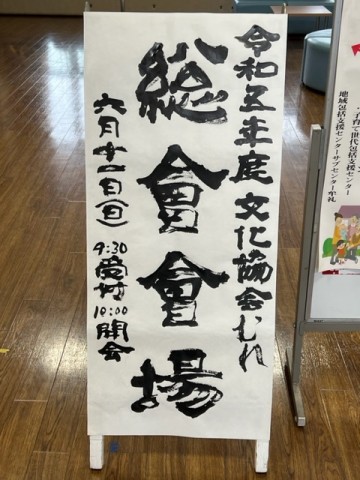 令和五年度 文化協会むれ
総會會場
六月十一日(日)
9:30受付
10:00開会
子育て世代包括支援センター
地域包括支援センターサブセンター牟礼